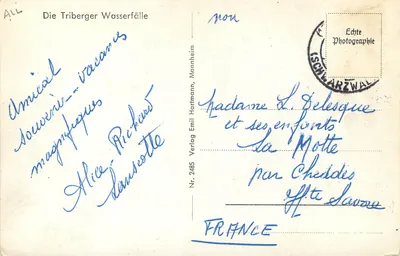 ALL
Die Triberger Wasserfälle
non
Echte
Photographie
(SCHWARZWAL
Amical
souvenir - vacances
magnifiques
Alice - Richard
Nr. 2485 Verlag Emil Hartmann, Mannheim
Madame L. Delesque
et ses enfants
La Motte
par Cheddes
Hte Savoie
FRANCE